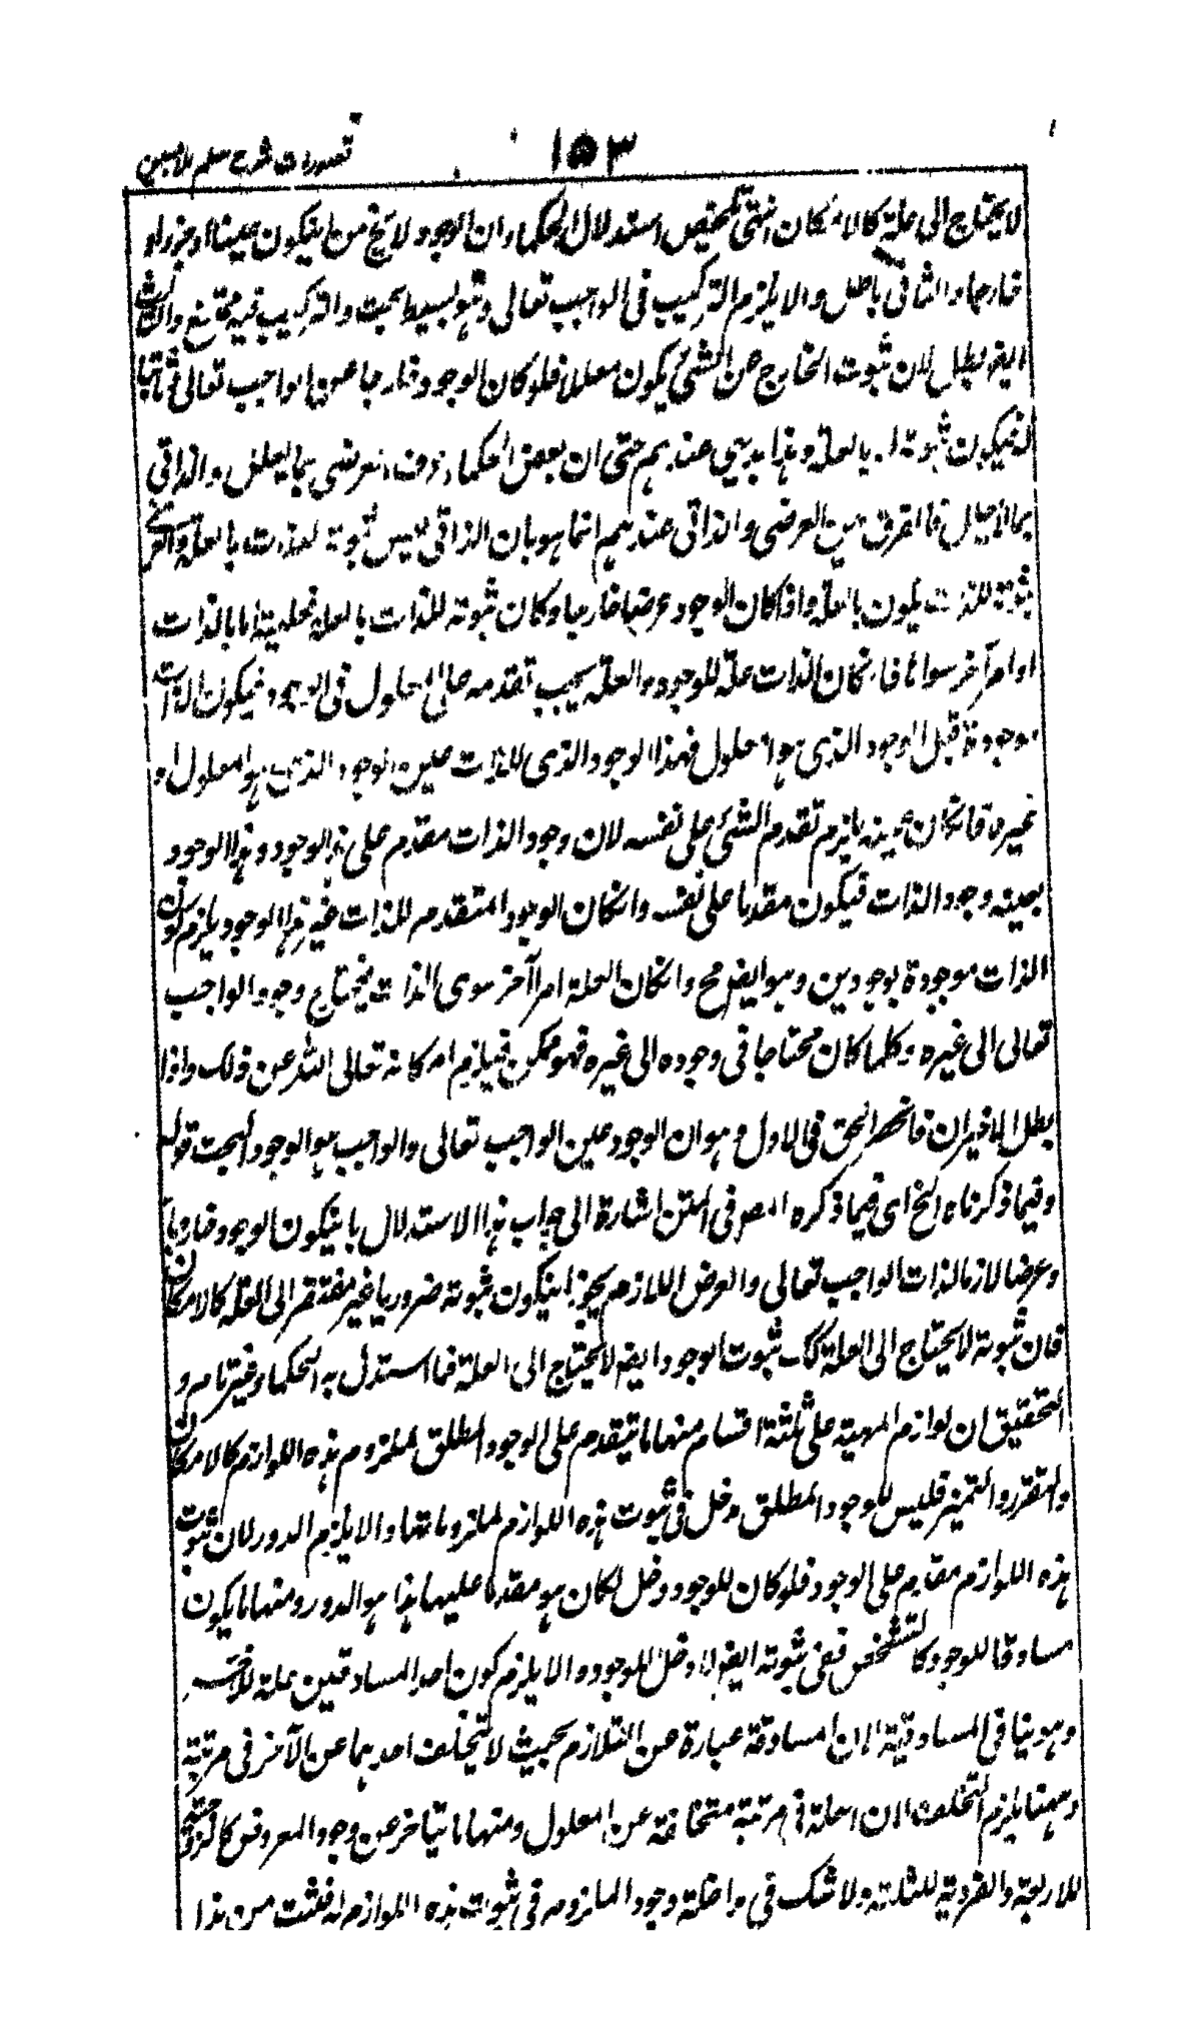 تصورات شرح سلم ملا مبین
١٥٣
لا یحتاج الی علة کالامکان انتهی تلخیص استدلال الحکماء ان الوجود لا یخ من ان یکون عینا او جزء او
خارجا و الثانی باطل و الا یلزم الترکیب فی الواجب تعالی و هو بسیط بحت و الترکیب فیه ممتنع و الثالث
ایضا بطل لان ثبوت الخارج عن الشیء یکون معللا فلو کان الوجود خارجا عن الواجب تعالی ثابتا
له فیکون ثبوته له بالعلة و هذا بدیهی عندهم حتی ان بعض الحکماء عرف العرضی بما یعلل و الذاتی
بما لا یعلل فالفرق بین العرضی و الذاتی عندهم انما هو بان الذاتی لیس ثبوته للذات بالعلة و العرضی
ثبوته للذات یکون بالعلة و اذا کان الوجود عرضیا خارجیا و کان ثبوته للذات بالعلة فعلیته اما بالذات
او امر آخر سواها فان کان الذات علة للوجود و العلة یجب تقدمه علی المعلول فی الوجود فیکون الذات
موجودة قبل الوجود الذی هو المعلول فهذا الوجود الذی للذات عین الوجود الذی هو المعلول او
غیره فان کان عینه یلزم تقدم الشیء علی نفسه لان وجود الذات مقدم علی هذا الوجود و هذا الوجود
بعینه وجود الذات فیکون مقدما علی نفسه و ان کان الوجود المتقدم للذات غیر هذا الوجود یلزم کون
الذات موجودة بوجودین و هو ایضا مح و ان کان العلة امرا آخر سوی الذات یحتاج وجود الواجب
تعالی الی غیره و کلما کان محتاجا فی وجوده الی غیره فهو ممکن فیلزم امکانه تعالی الله عن ذلک و اذا
بطل الاخیران فانحصر الحق فی الاول و هو ان الوجود عین الواجب تعالی و الواجب هو الوجود البحت قوله
و فیما ذکرناه الخ ای فیما ذکره المصر فی المتن اشارة الی جواب هذا الاستدلال بان یکون الوجود خارجیا
و عرضا لازما لذات الواجب تعالی و العرض اللازم یجوز ان یکون ثبوته ضروریا غیر مفتقر الی العلة کالامکان
فان ثبوته لا یحتاج الی العلة کک ثبوت الوجود ایضا لا یحتاج الی العلة فما استدل به الحکماء غیر تام و
التحقیق ان لوازم المهیة علی ثلثة اقسام منها ما یتقدم علی الوجود المطلق لملزوم هذه اللوازم کالامکان
و التقرر و التمیز فلیس للوجود المطلق دخل فی ثبوت هذه اللوازم لملزوماتها و الا یلزم الدور لان ثبوت
هذه اللوازم مقدم علی الوجود فلو کان للوجود دخل لکان هو مقدما علیها هذا هو الدور و منها ما یکون
مساوقا للوجود کالتشخص ففی ثبوته ایضا لا دخل للوجود و الا یلزم کون احد المساوقین علة للآخر
و هو ینافی المساوقیة لان المساوقة عبارة عن التلازم بحیث لا یتخلف احدهما عن الآخر فی مرتبة
و ههنا یلزم التخلف لان العلة فی مرتبة متخلفة عن المعلول و منها ما یتاخر عن وجود المعروض کالزوجیة
للاربعة و الفردیة للثلثة و لا شک فی مداخلة وجود الملزوم فی ثبوت هذه اللوازم له فثبت من هذا